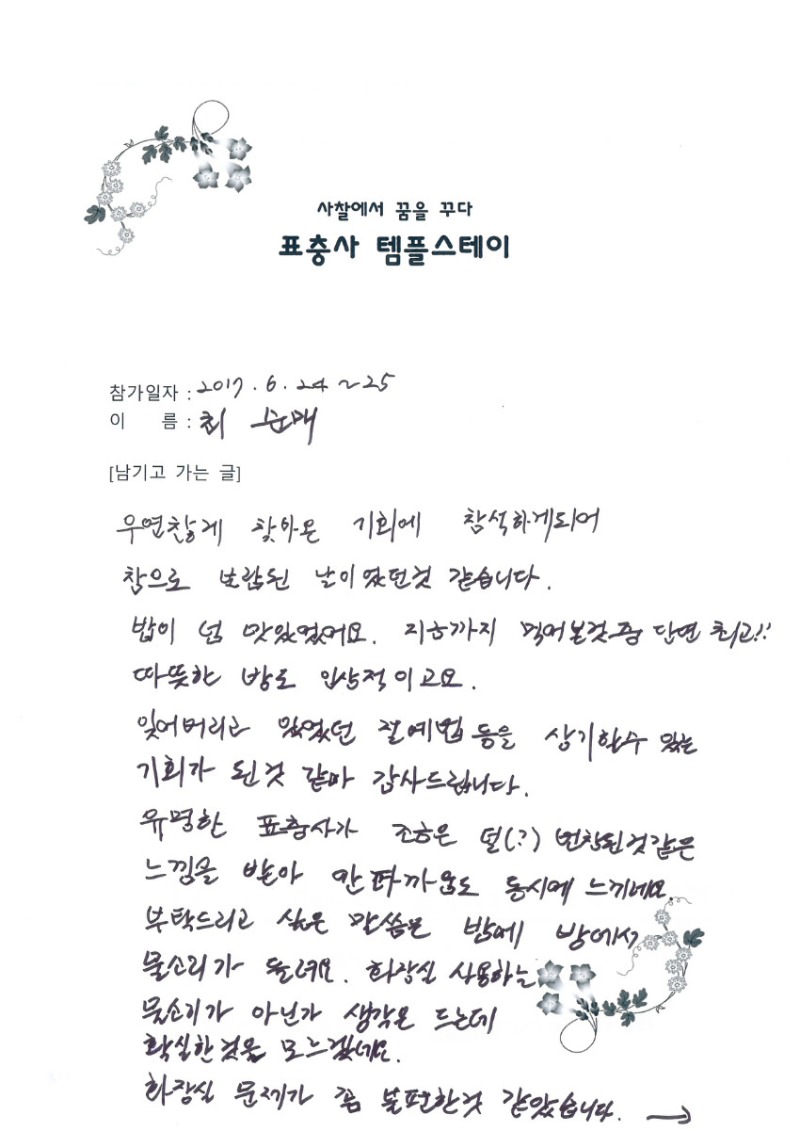 사찰에서 꿈을 꾸다
표충사 템플스테이
참가일자 : 2017. 6. 24 ~ 25
이 름 : 최 순매
[남기고 가는 글]
우연찮게 찾아온 기회에 참석하게되어
참으로 보람된 날이었던것 같습니다.
밥이 넘 맛있었어요. 지금까지 먹어본것중 단연 최고!!
따뜻한 방도 인상적이고요.
잊어버리고 있었던 절예법 등을 상기할수 있는
기회가 된것 같아 감사드립니다.
유명한 표충사가 조금은 덜(?) 번창된것같은
느낌을 받아 안타까움도 동시에 느끼네요
부탁드리고 싶은 말씀은 밤에 방에서
물소리가 들려요. 화장실 사용하는
물소리가 아닌가 생각은 드는데
확실한것은 모르겠네요.
화장실 문제가 좀 불편한것 같았습니다. →